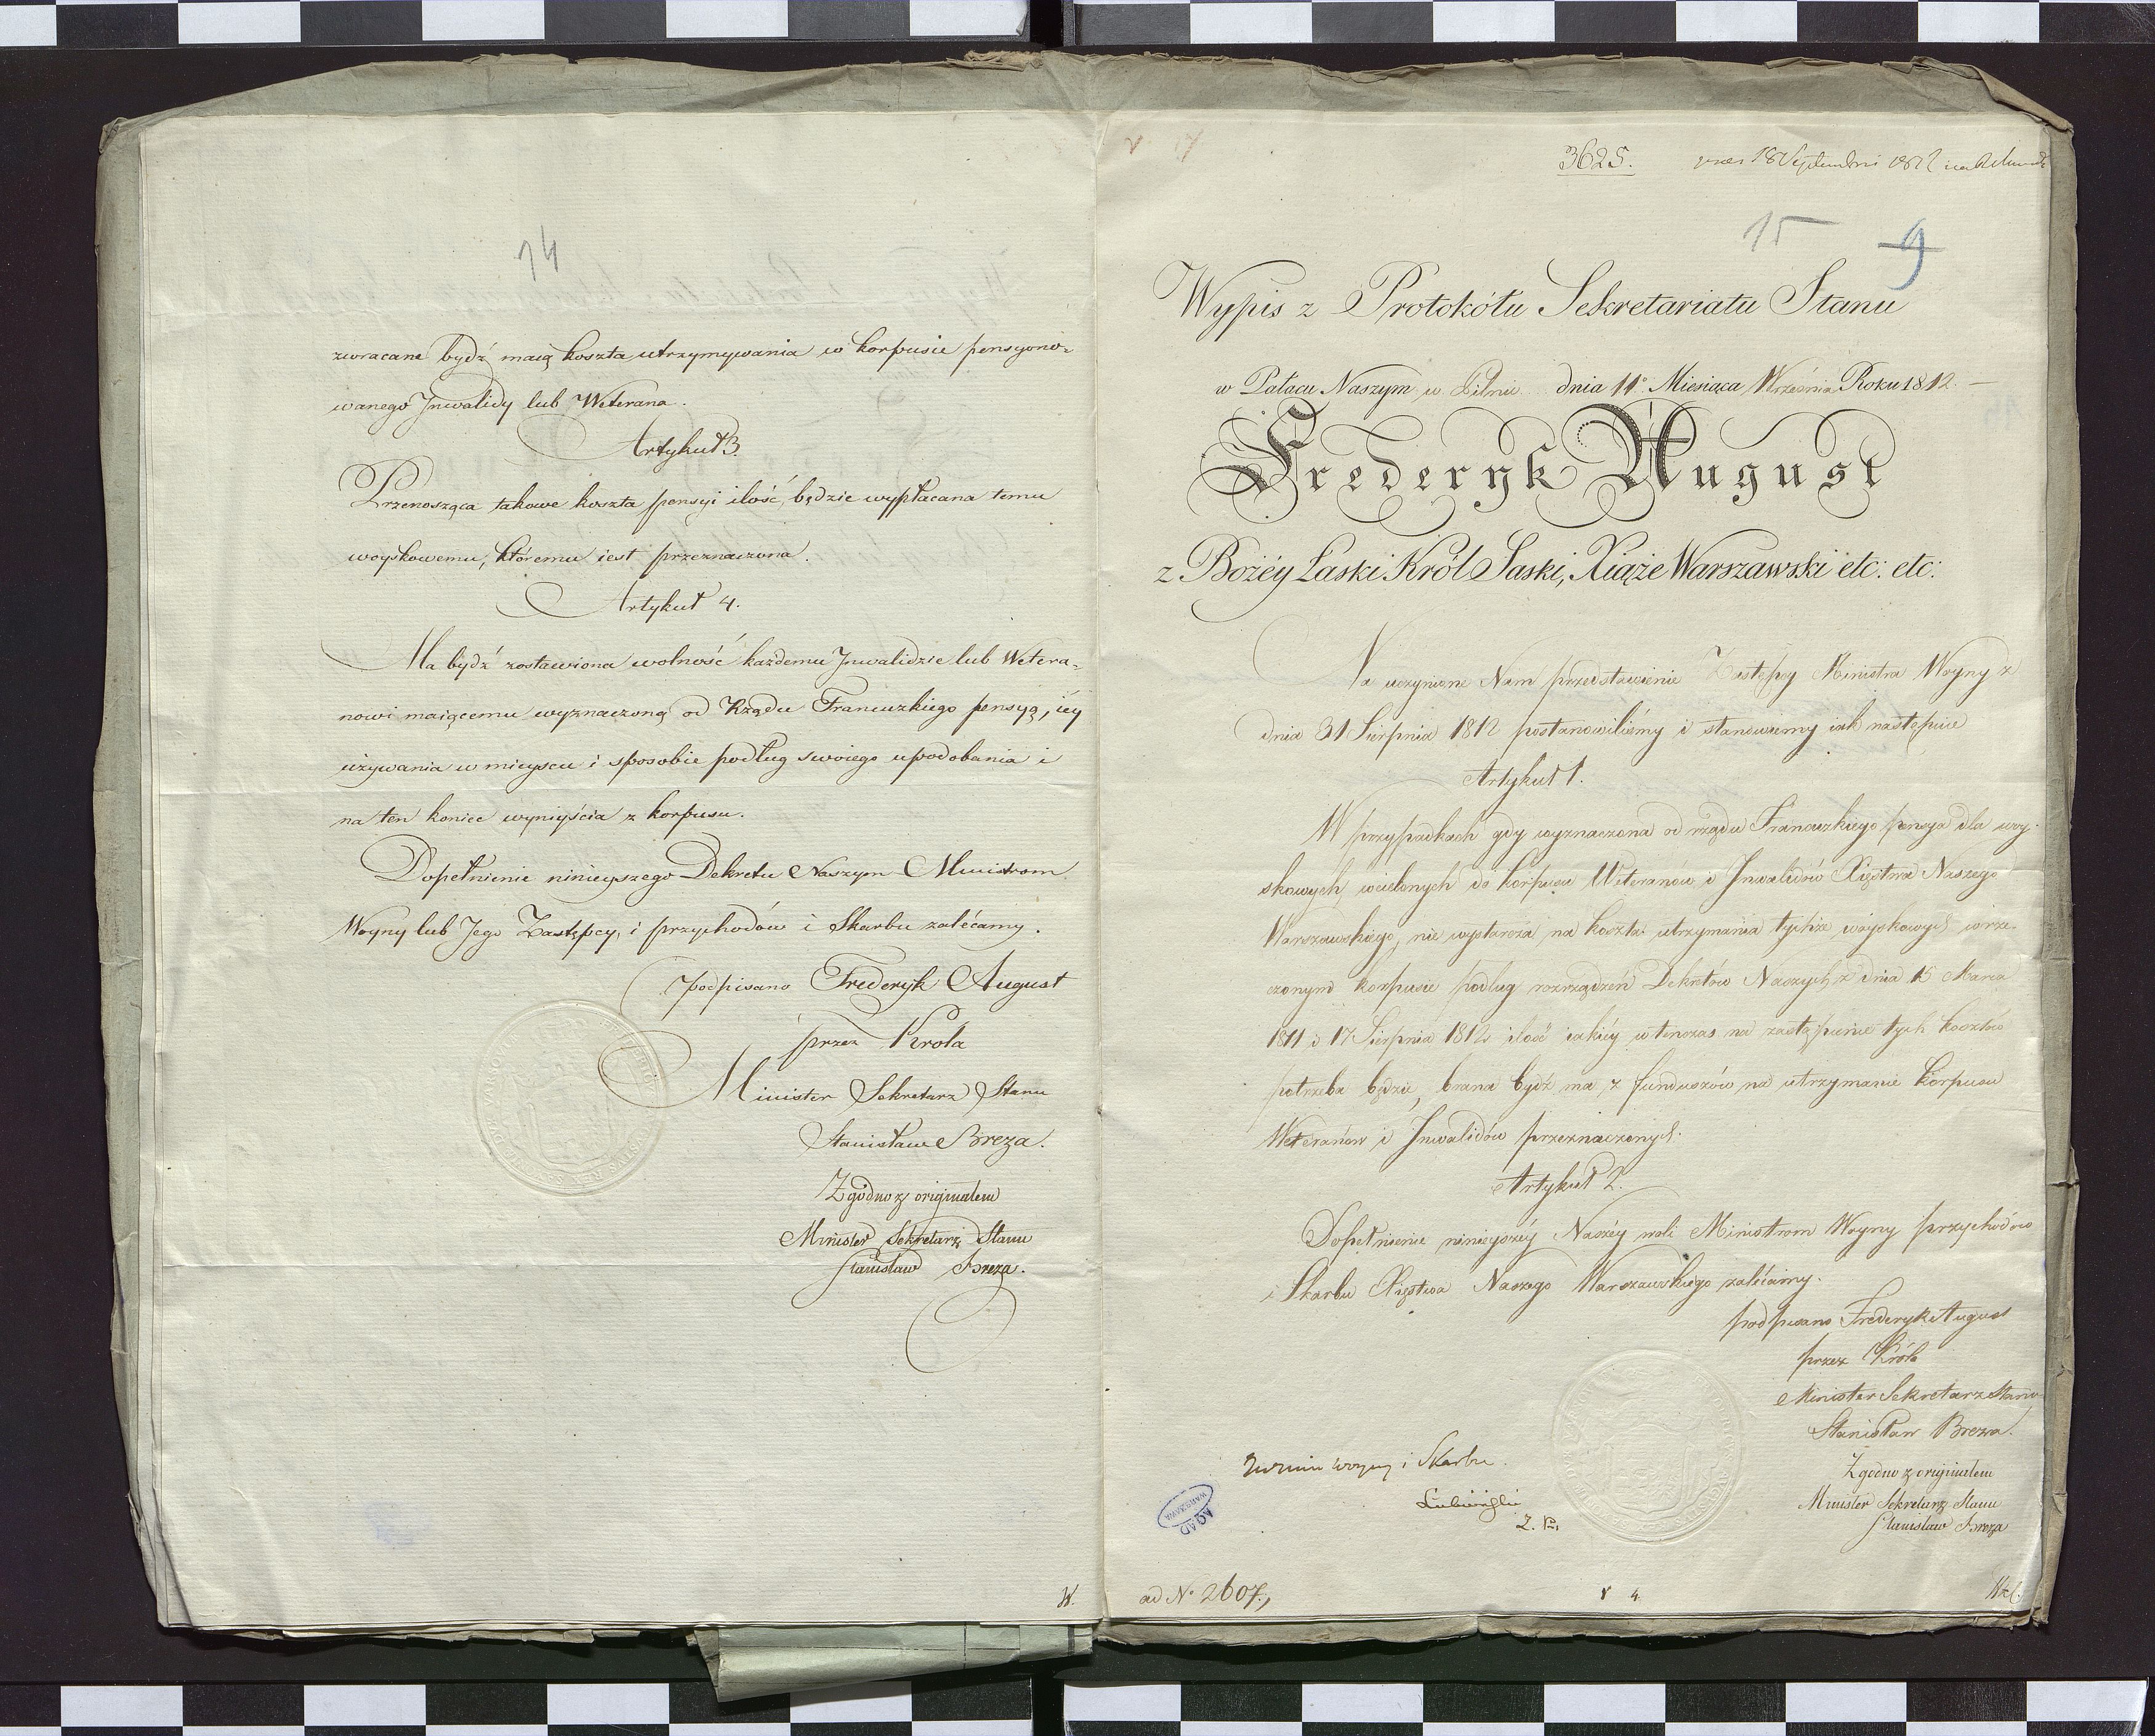 14
zwracane bydź maią koszta utrzymywania w korpusie pensyono-
wanego Jnwalidy lub Weterana.
Artykuł 3.
Przenosząca takowe koszta pensyi ilość, będzie wypłacana temu
woyskowemu, któremu iest przeznaczona.
Artykuł 4.
Ma bydź zostawiona wolność każdemu Jnwalidzie lub Wetera-
nowi maiącemu wyznaczoną od Rządu Francuzkiego pensyą, iéy
używania w mieyscu i sposobie podług swoiego upodobania i
na ten koniec wyniyścia z korpusu.
Dopełnienie ninieyszego Dekretu Naszym Ministrom
Woyny lub Jego Zastępcy, i przychodów i Skarbu zalécamy.
podpisano Frederyk August
przez Krola
Minister Sekretarz Stanu
Stanisław Breza.
Zgodno z originałem
Minister Sekretarz Stanu
Stanisław Breza.
W.
3625. 18 Septembris 1812
15 9
Wypis z Protokółu Sekretariatu Stanu
w Pałacu Naszym w Pilnic dnia 11° Miesiąca Września Roku 1812. —
Frederyk August
z Bożéy Łaski Król Saski, Xiąże Warszawski etc: etc:
Na uczynione Nam przedstawienie Zastępcy Ministra Woyny z
dnia 31 Sierpnia 1812 postanowiliśmy i stanowiemy iak następuie
Artykuł 1.
W przypadkach gdy wyznaczona od rządu Francuzkiego pensya dla woy-
skowych, wcielonych do korpusu Weteranów i Jnwalidów Xięstwa Naszego
Warszawskiego, nie wystarcza na koszta utrzymania tychże woyskowych w rze-
czonym korpusie podług rozrządzeń Dekretów Naszych z dnia 15 Marca
1811 i 17 Sierpnia 1812 ilość iakiéy w tenczas na zastąpienie tych kosztów
potrzeba będzie, brana bydź ma z funduszów na utrzymanie Korpusu
Weteranów i Jnwalidów przeznaczonych.
Artykuł 2.
Dopełnienie ninieyszéy Naszéy woli Ministrom Woyny przychodów
i Skarbu Xięstwa Naszego Warszawskiego zalécamy.
podpisano Frederyk August
przez Króla
Minister Sekretarz Stanu
Stanisław Breza.
Zgodno z originałem
Minister Sekretarz Stanu
Stanisław Breza
woyny i Skarbu.
AGAD
WARSZAWA
ad N° 2607.,
4